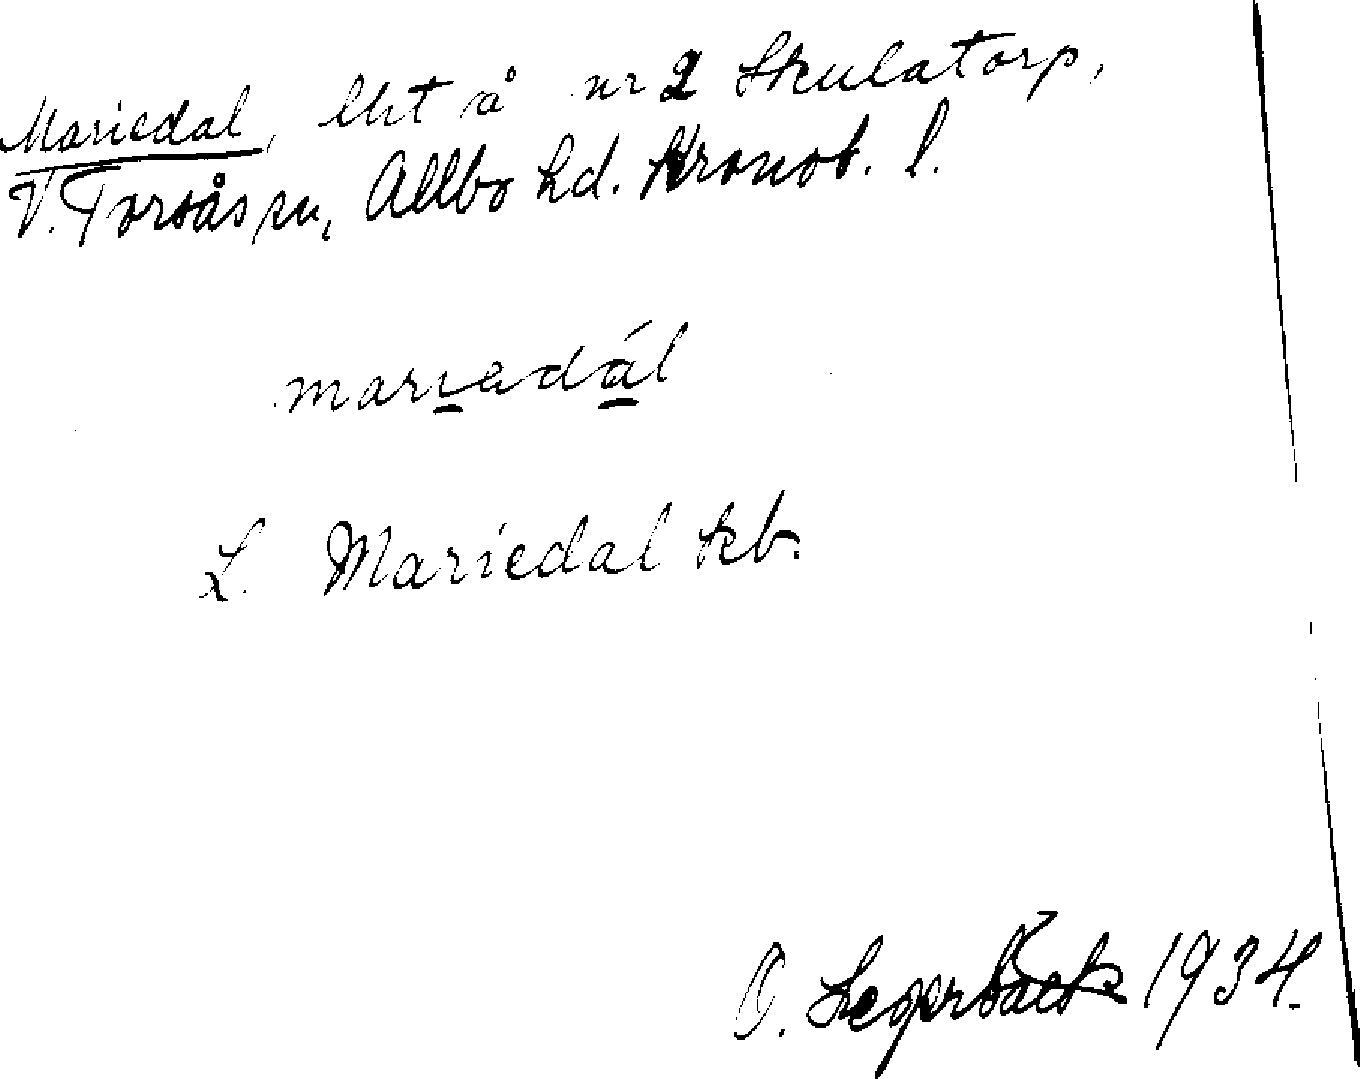 Mariedal, lht å nr 2 Skulatorp,
V. Torsås sn, Allbo hd. Kronob. l.
marıedál
L. Mariedal kb.
O. Segerbäck 1934.